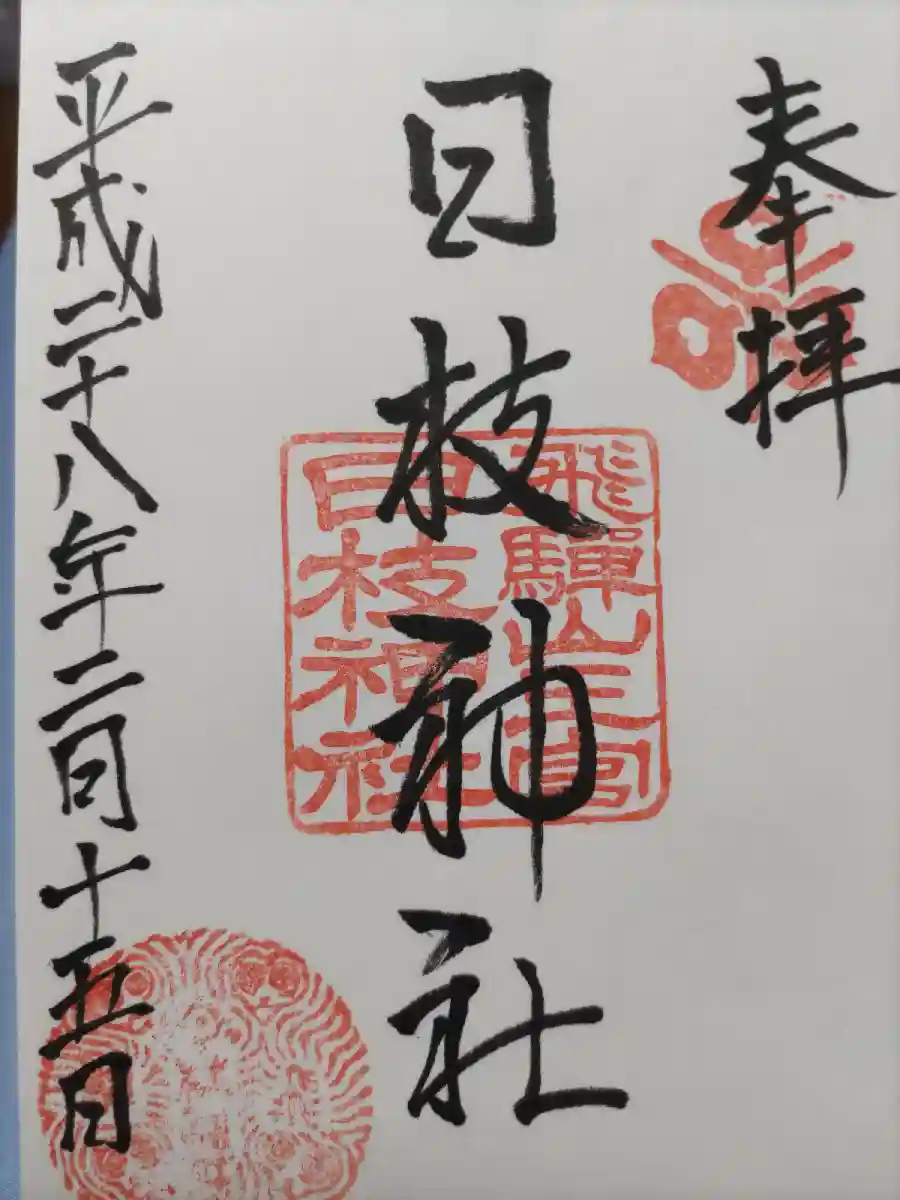 奉拝
日枝神社
飛騨山王宮
日枝神社
平成二十八年二月十五日